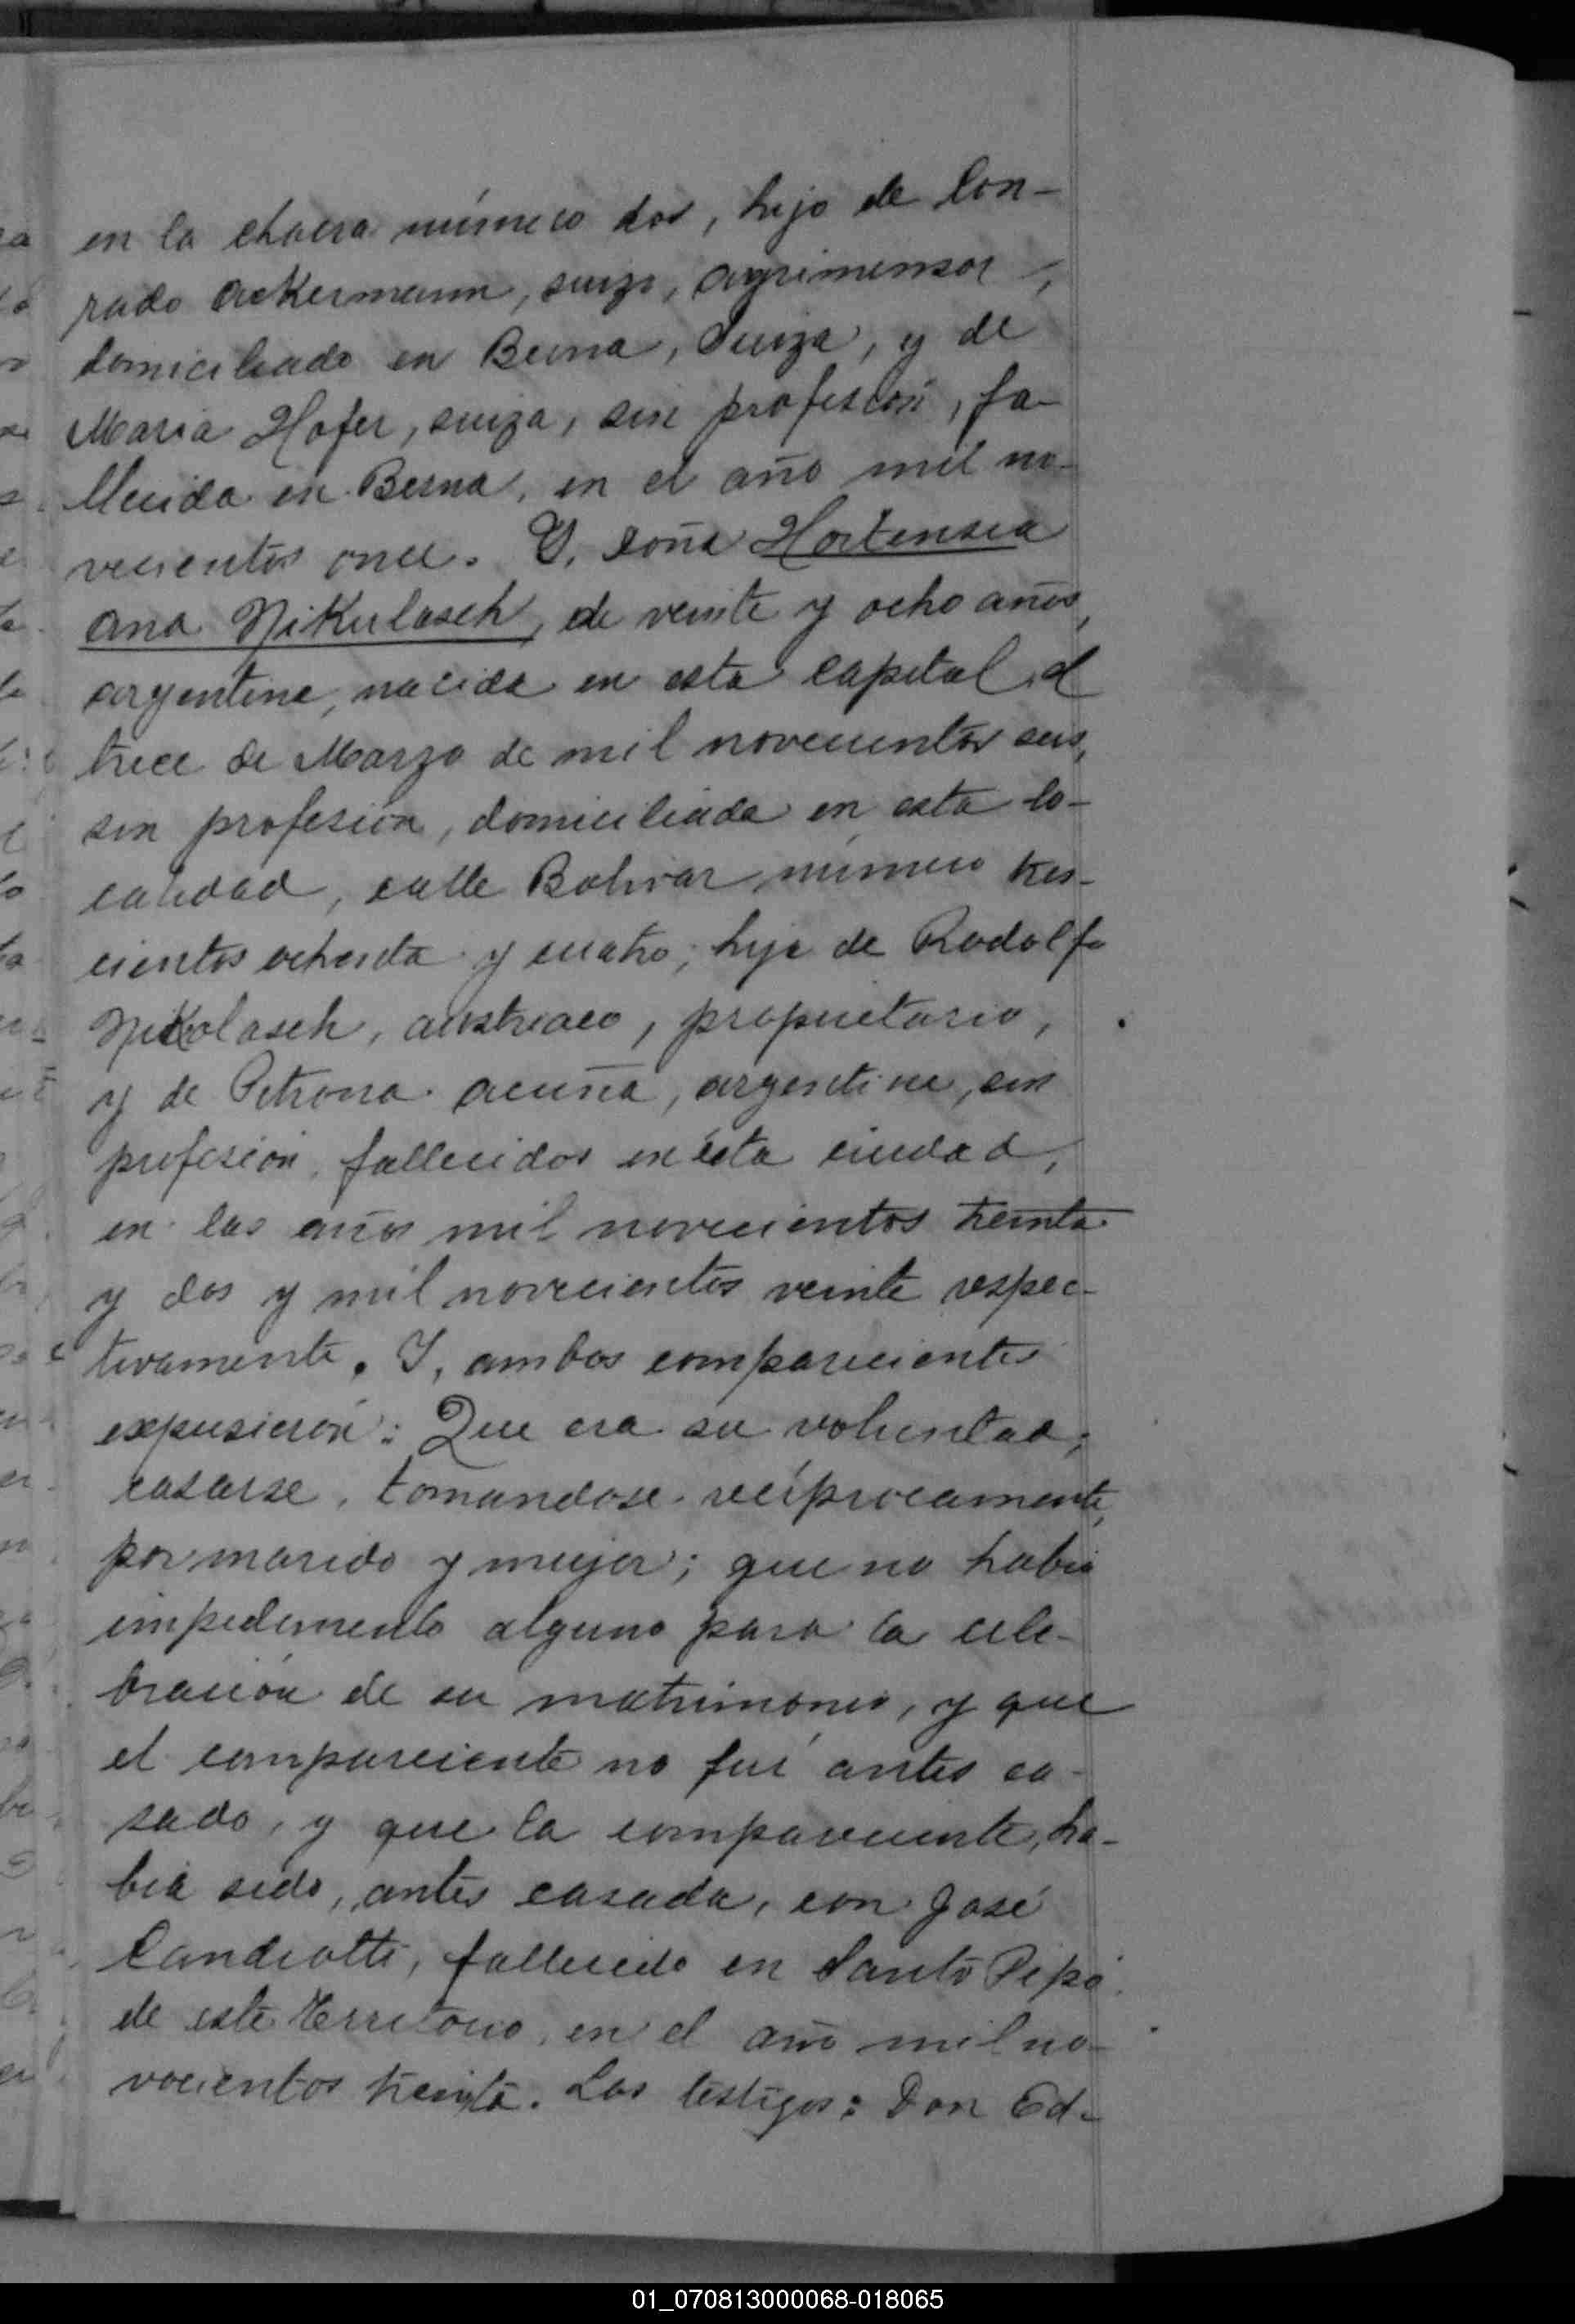 en la chacra número dos, hijo de Con-
rado Ackermann, suizo, agrimensor,
domiciliado en Berna, Suiza, y de
Maria Hofer, suiza, sin profesión, fa-
llecida en Berna, en el año mil no-
vecientos once. Y, doña Hortensia
Ana Nikulasch, de veinte y ocho años,
argentina, nacida en esta capital el
trece de Marzo de mil novecientos seis,
sin profesión, domiciliada en esta lo-
calidad, calle Bolivar número tres-
cientos ochenta y cuatro; hija de Rodolfo
Nikolasch, austriaco, propietario,
y de Petrona Acuña, argentina, sin
profesión, fallecidos en ésta ciudad,
en los años mil novecientos treinta
y dos y mil novecientos veinte respec-
tivamente. Y, ambos comparecientes
expusieron: Que era su voluntad,
casarse, tomandose recíprocamente,
por marido y mujer; que no habia
impedimento alguno para la cele-
bración de su matrimonio, y que
el compareciente no fué antes ca-
sado, y que la compareciente, ha-
bia sido, antes casada, con José
Candiotti, fallecido en Santo Pipó
de este Territorio, en el año mil no-
vecientos treinta. Los testigos: Don Ed-
01_070813000068-018065